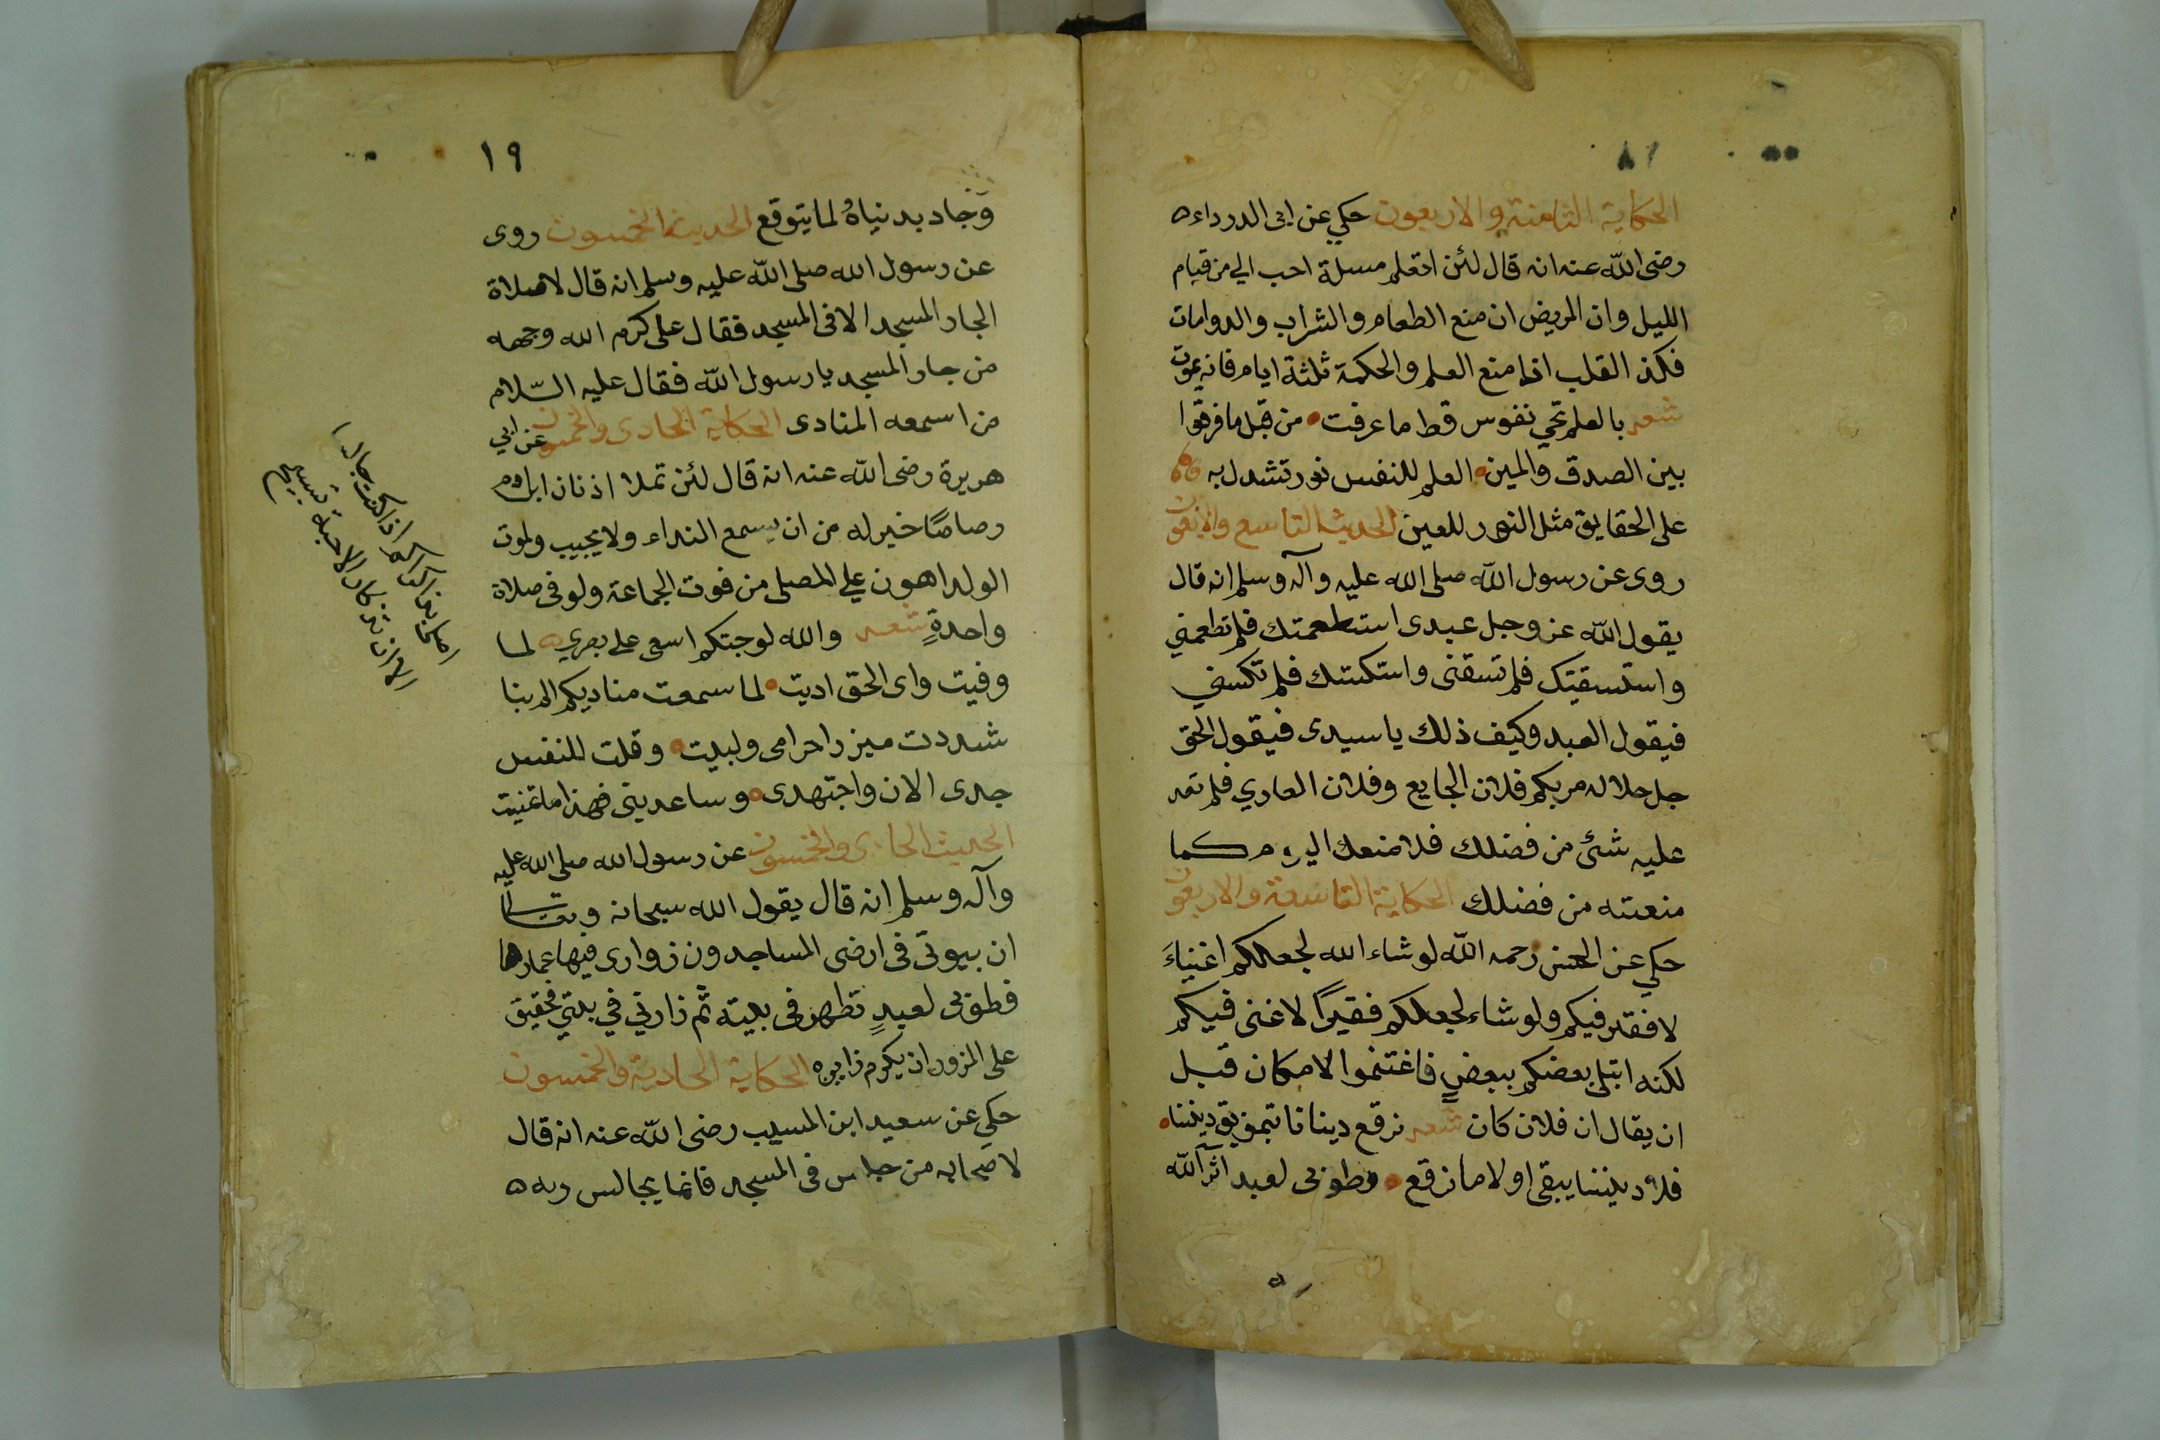 الحكاية الثامنة والاربعون حكي عن ابى الدرداء
رضى الله عنه انه قال لئن اتعلم مسلة احب الي من قيام
الليل وان المريض ان منع الطعام والشراب والدوامات
فكذ القلب اذا منع العلم والحكمة ثلثة ايام فانه يموت
شعر بالعلم تحي نفوس قط ما عرفت من قبل ما فرقوا
بين الصدق والمين العلم للنفس نور تشدل به
على الحقايق مثل النور للعين الحديث التاسع والاربعون
روى عن رسول الله صلى الله عليه وآله وسلم انه قال
يقول الله عز وجل عبدى استطعمتك فلم تطعمني
واستسقيتك فلم تسقنى واستكستك فلم تكسني
فيقول العبد وكيف ذلك يا سيدى فيقول الحق
جل جلاله مر بكم فلان الجايع وفلان العاري فلم تعد
عليه شئ من فضلك فلامنعك اليوم كما
منعته من فضلك الحكاية التاسعة والاربعون
حكي عن الحسن رحمه الله لو شاء الله لجعلكم اغنياء
لا فقير فيكم ولو شاء لجعلكم فقيرًا لا غنى فيكم
لكنه ابتلى بعضكم ببعض فاغتنموا الامكان قبل
ان يقال ان فلان كان شعر نرقع دينانا بتمزيق ديننا
فلا ديننا يبقى اولا ما نرقع وطوبى لعبد اثر الله
١٩
وجاد بدنياه لما يتوقع الحديث الخمسون روى
عن رسول الله صلى الله عليه وسلم انه قال لا صلاة
الجار المسجد الا فى المسجد فقال على كرم الله وجهه
من جار المسجد يا رسول الله فقال عليه السّلام
من اسمعه المنادى الحكاية الحادى والخمسون عن ابي
هريرة رضى الله عنه انه قال لئن تملا اذنان ابن ادم
رصاصًا خير له من ان يسمع النداء ولا يجيب ولموت
الولد اهون علي المصلى من فوت الجماعة ولو فى صلاة
واحدةٍ شعر والله لو جئتكم اسعى على بصري لما
وفيت واى الحق اديت لما سمعت مناديكم الم بنا
شددت ميزر احرامى ولبيت وقلت للنفس
جدى الان واجتهدى وساعدينى فهذا ما تمنيت
الحديث الحادى والخمسون عن رسول الله صلى الله عليه
وآله وسلم انه قال يقول الله سبحانه وتعالى
ان بيوتى فى ارضى المساجد ون زوارى فيها عمارها
فطوبى لعبدٍ تطهر فى بيته ثم زارني في بيتي فحقيق
على المزور ان يكرم زايره الحكاية الحادية والخمسون
حكي عن سعيد ابن المسيب رضى الله عنه انه قال
لاصحابه من جلس فى المسجد فانما يجالس ربه